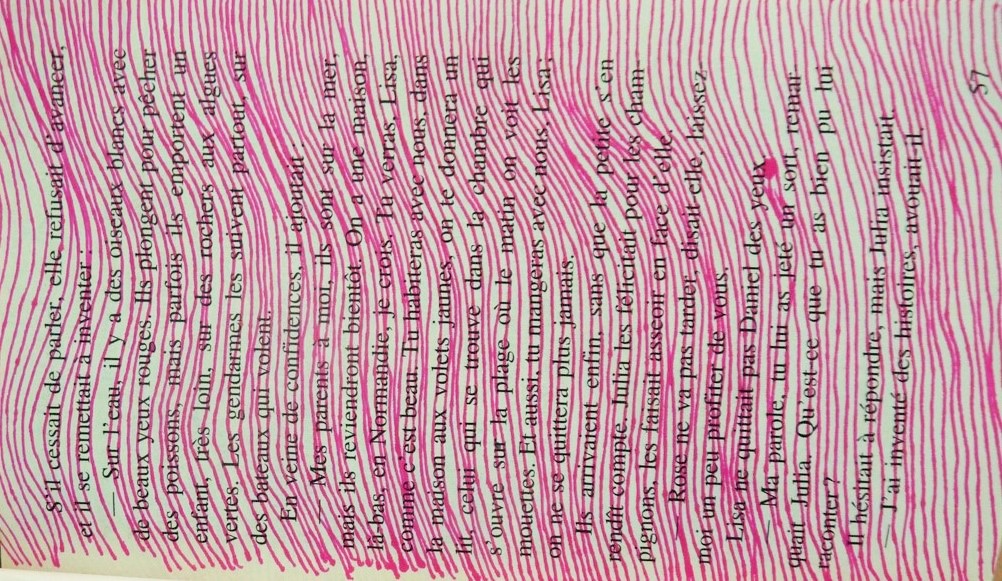 S'il cessait de parler, elle refusait d'avancer,
et il se remettait à inventer :
— Sur l'eau, il y a des oiseaux blancs avec
de beaux yeux rouges. Ils plongent pour pêcher
des poissons, mais parfois ils emportent un
enfant, très loin, sur des rochers aux algues
vertes. Les gendarmes les suivent partout, sur
des bateaux qui volent.
En veine de confidences, il ajoutait :
— Mes parents à moi, ils sont sur la mer,
mais ils reviendront bientôt. On a une maison,
là-bas, en Normandie, je crois. Tu verras, Lisa,
comme c'est beau. Tu habiteras avec nous, dans
la maison aux volets jaunes, on te donnera un
lit, celui qui se trouve dans la chambre qui
s'ouvre sur la plage où le matin on voit les
mouettes. Et aussi, tu mangeras avec nous, Lisa ;
on ne se quittera plus jamais.
Ils arrivaient enfin, sans que la petite s'en
rendît compte. Julia les félicitait pour les cham-
pignons, les faisait asseoir en face d'elle.
— Rose ne va pas tarder, disait-elle, laissez-
moi un peu profiter de vous.
Lisa ne quittait pas Daniel des yeux.
— Ma parole, tu lui as jeté un sort, remar-
quait Julia. Qu'est-ce que tu as bien pu lui
raconter ?
Il hésitait à répondre, mais Julia insistait.
— J'ai inventé des histoires, avouait-il.
57